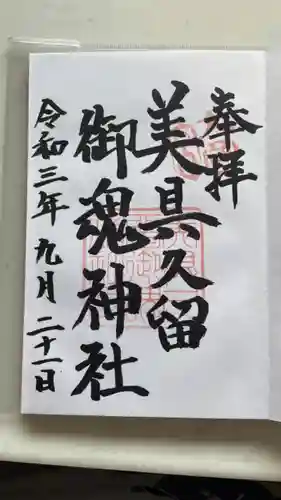 奉拝
美具久留
御魂神社
令和三年九月二十一日